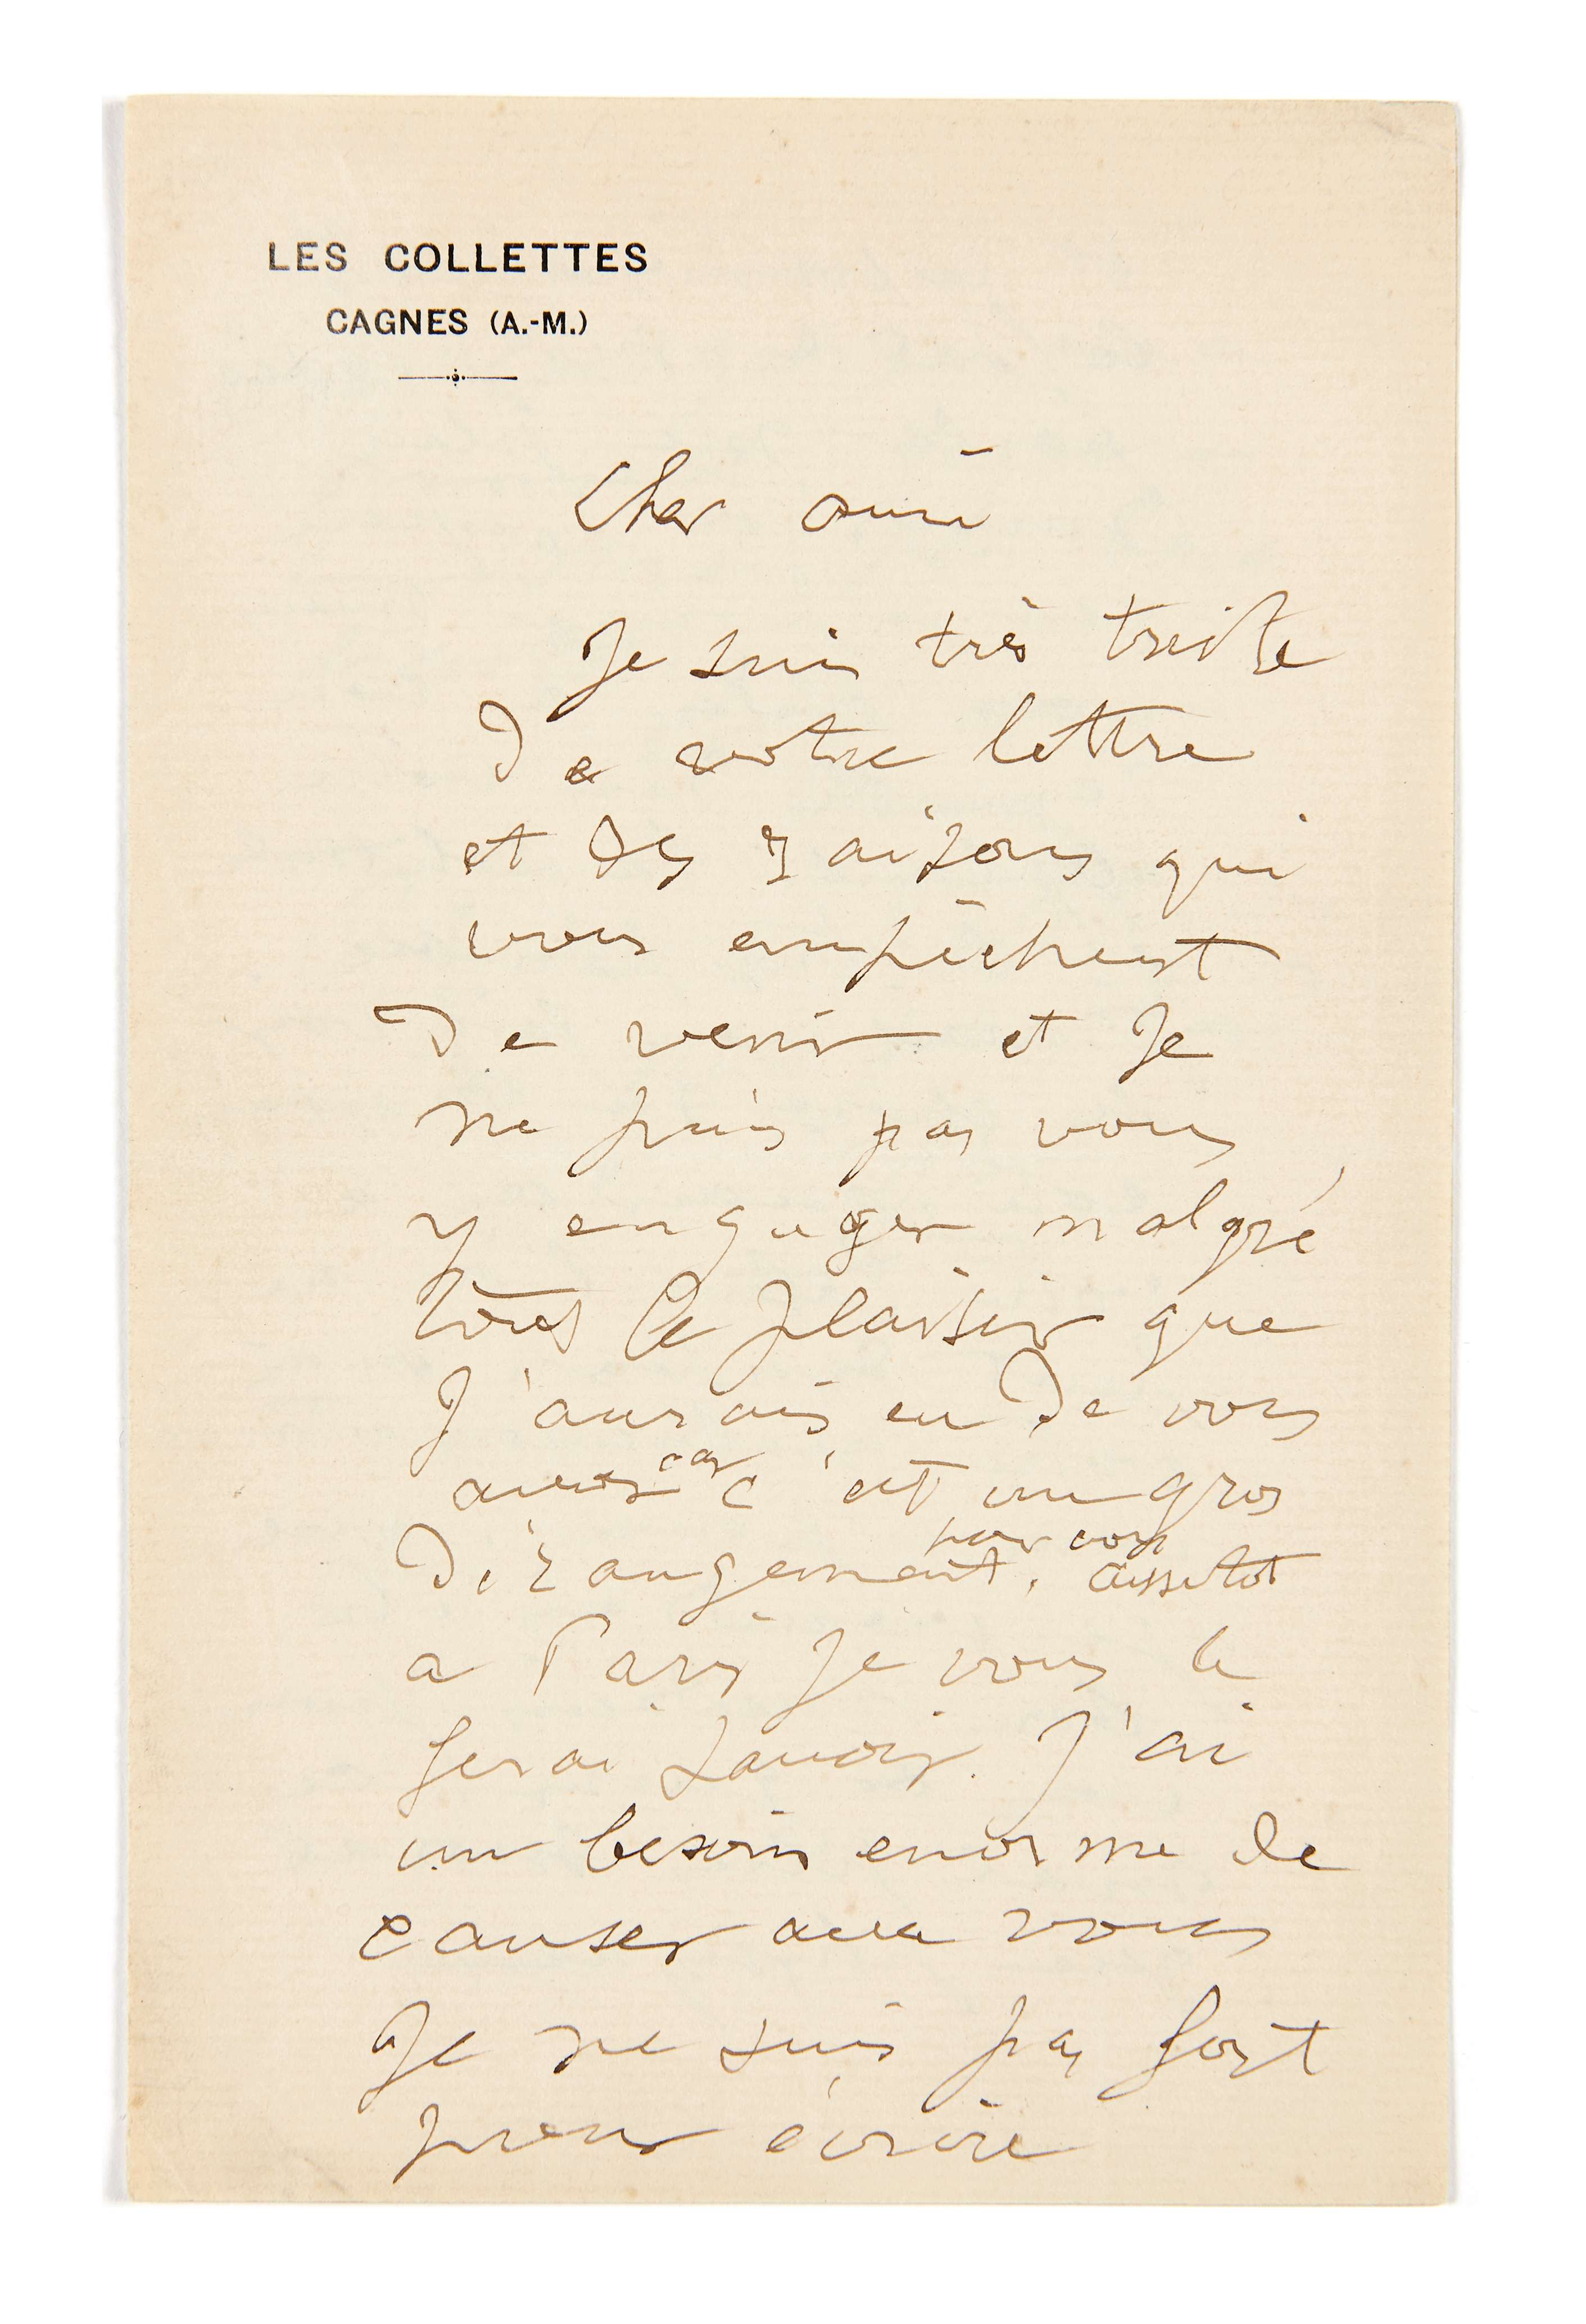 LES COLLETTES
CAGNES (A.-M.)
Cher ami
Je suis très triste
De votre lettre
et Des raisons qui
vous empêchent
De venir et Je
ne puis pas vous
y engager malgré
tout le plaisir que
J'aurais eu De vous
avoir car c'est un gros
Dérangement pour vous. aussitot
a Paris Je vous le
ferai savoir. J'ai
un besoin enorme de
causer avec vous
Je ne suis pas fort
pour écrire